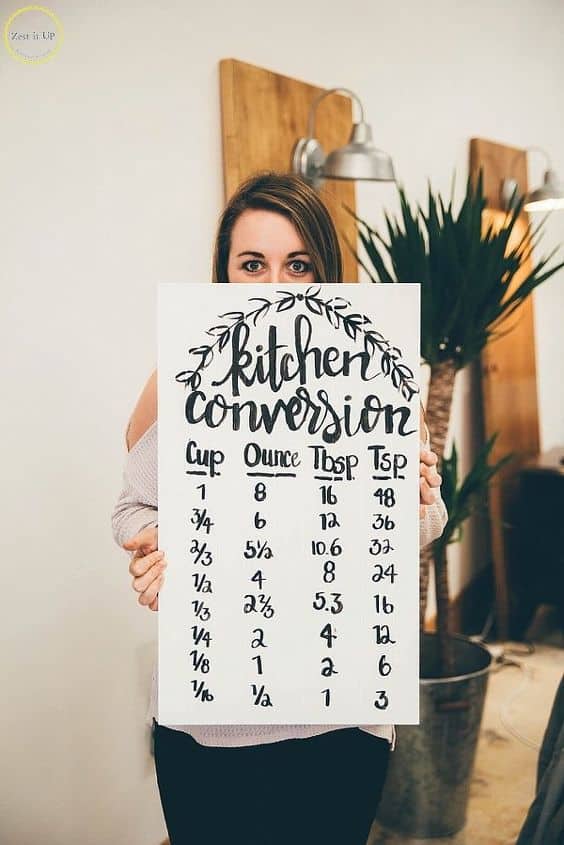 Zest it UP
kitchen
conversion
Cup Ounce Tbsp Tsp
1 8 16 48
3/4 6 12 36
2/3 5½ 10.6 32
1/2 4 8 24
1/3 2⅔ 5.3 16
1/4 2 4 12
1/8 1 2 6
1/16 1/2 1 3